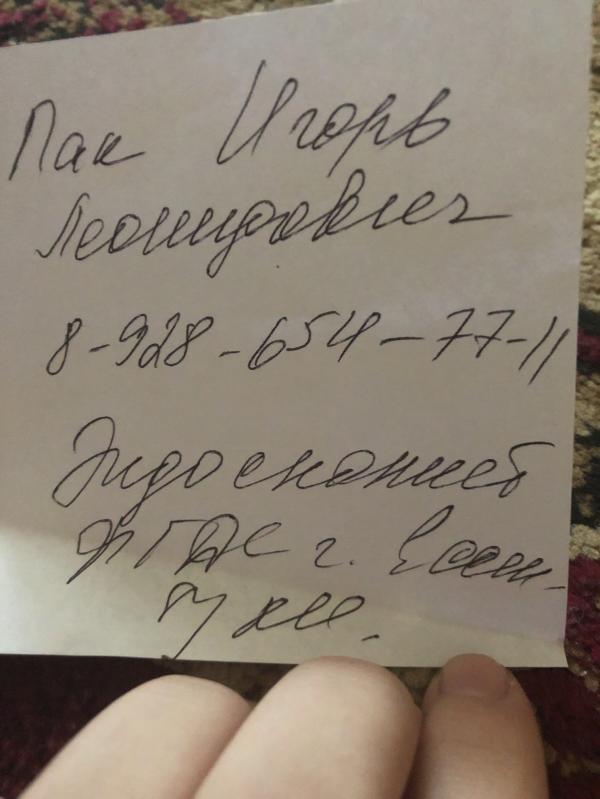 Пак Игорь
Леонидович
8-928-654-77-11
Эндоскопист
ФГДС г. Ессен-
туки.